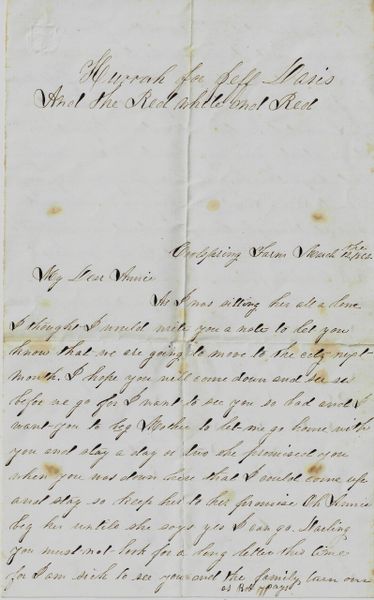 Hurrah for Jeff Davis
And the Red white and Red
Coolspring Farm March
My Dear Annie
As I was sitting her all a lone
I thought I would write you a note to let you
know that we are going to move to the city next
month. I hope you will come down and see us
before we go for I want to see you so bad and I
want you to beg Mother to let me go home with
you and stay a day or two she promised you
when you was down here that I could come up
and stay so keep her to her promise Oh Annie
beg her untill she says yes I can go. Darling
you must not look for a long letter this time
for I am sick to see you and the family turn over